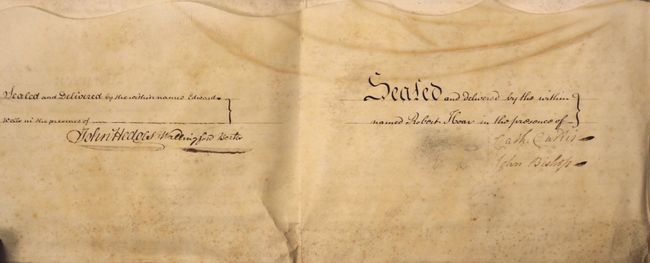 Sealed and Delivered by the within named Edward
Wells in the presence of
John Hedges Wallingford Berks
Sealed and delivered by the within
named Robert Hoar in the presence of
Cath. Curtis
John Bishop